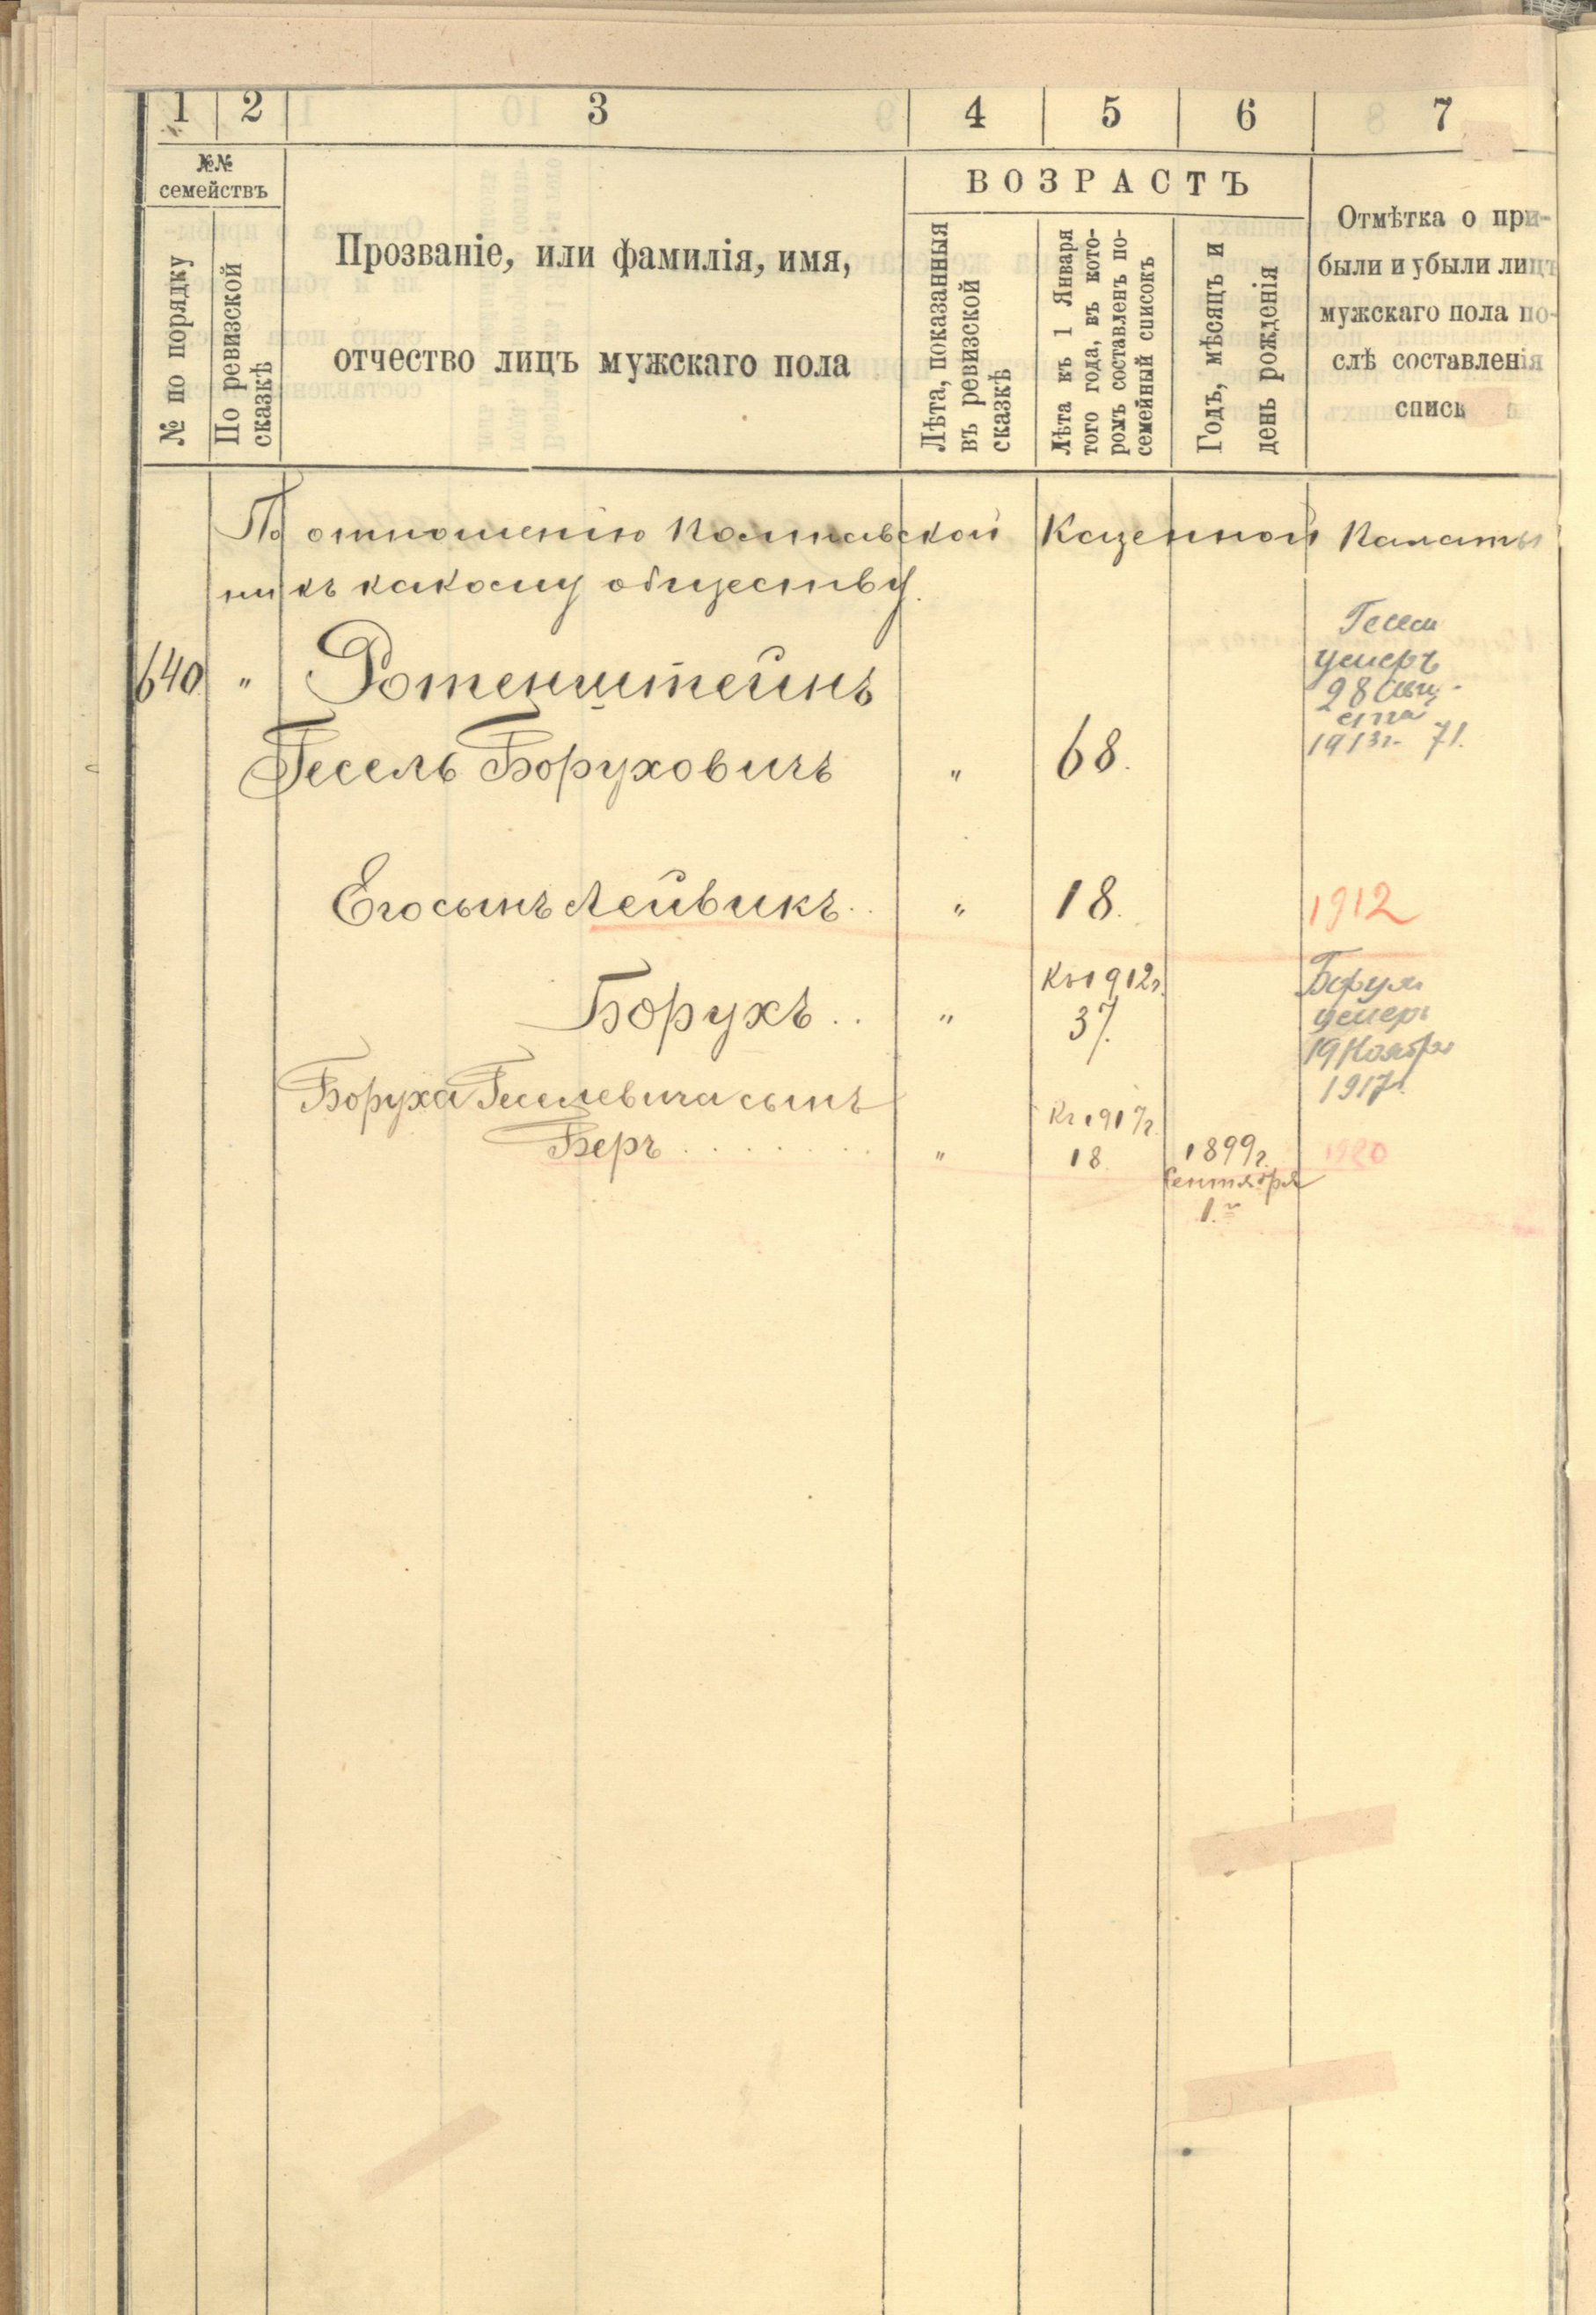 1 2 3 4 5 6 7
№№
семействъ
№ по порядку
По ревизской
сказкѣ
Прозваніе, или фамилія, имя,
отчество лицъ мужскаго пола
ВОЗРАСТЪ
Лѣта, показанныя
въ ревизской
сказкѣ
Лѣта къ 1 Января
того года, въ кото-
ромъ составленъ по-
семейный списокъ
Годъ, мѣсяцъ и
день рожденія
Отмѣтка о при-
были и убыли лицъ
мужскаго пола по-
слѣ составленія
По отношенію Полтавской Казенной Палаты
ни къ какому обществу.
640 " Ротенштейнъ
Гесель Боруховичъ " 68.
умеръ
28
1913г. 71.
Его сынъ Лейвикъ.. " 18. 1912
Борухъ.. " Къ 1912г. 37.
Борух
умеръ
19 Ноября
1917г.
Боруха Геселевича сынъ
Беръ . . . . . . . . " Къ 1917г. 18. 1899г. 1920
Сентября
1.